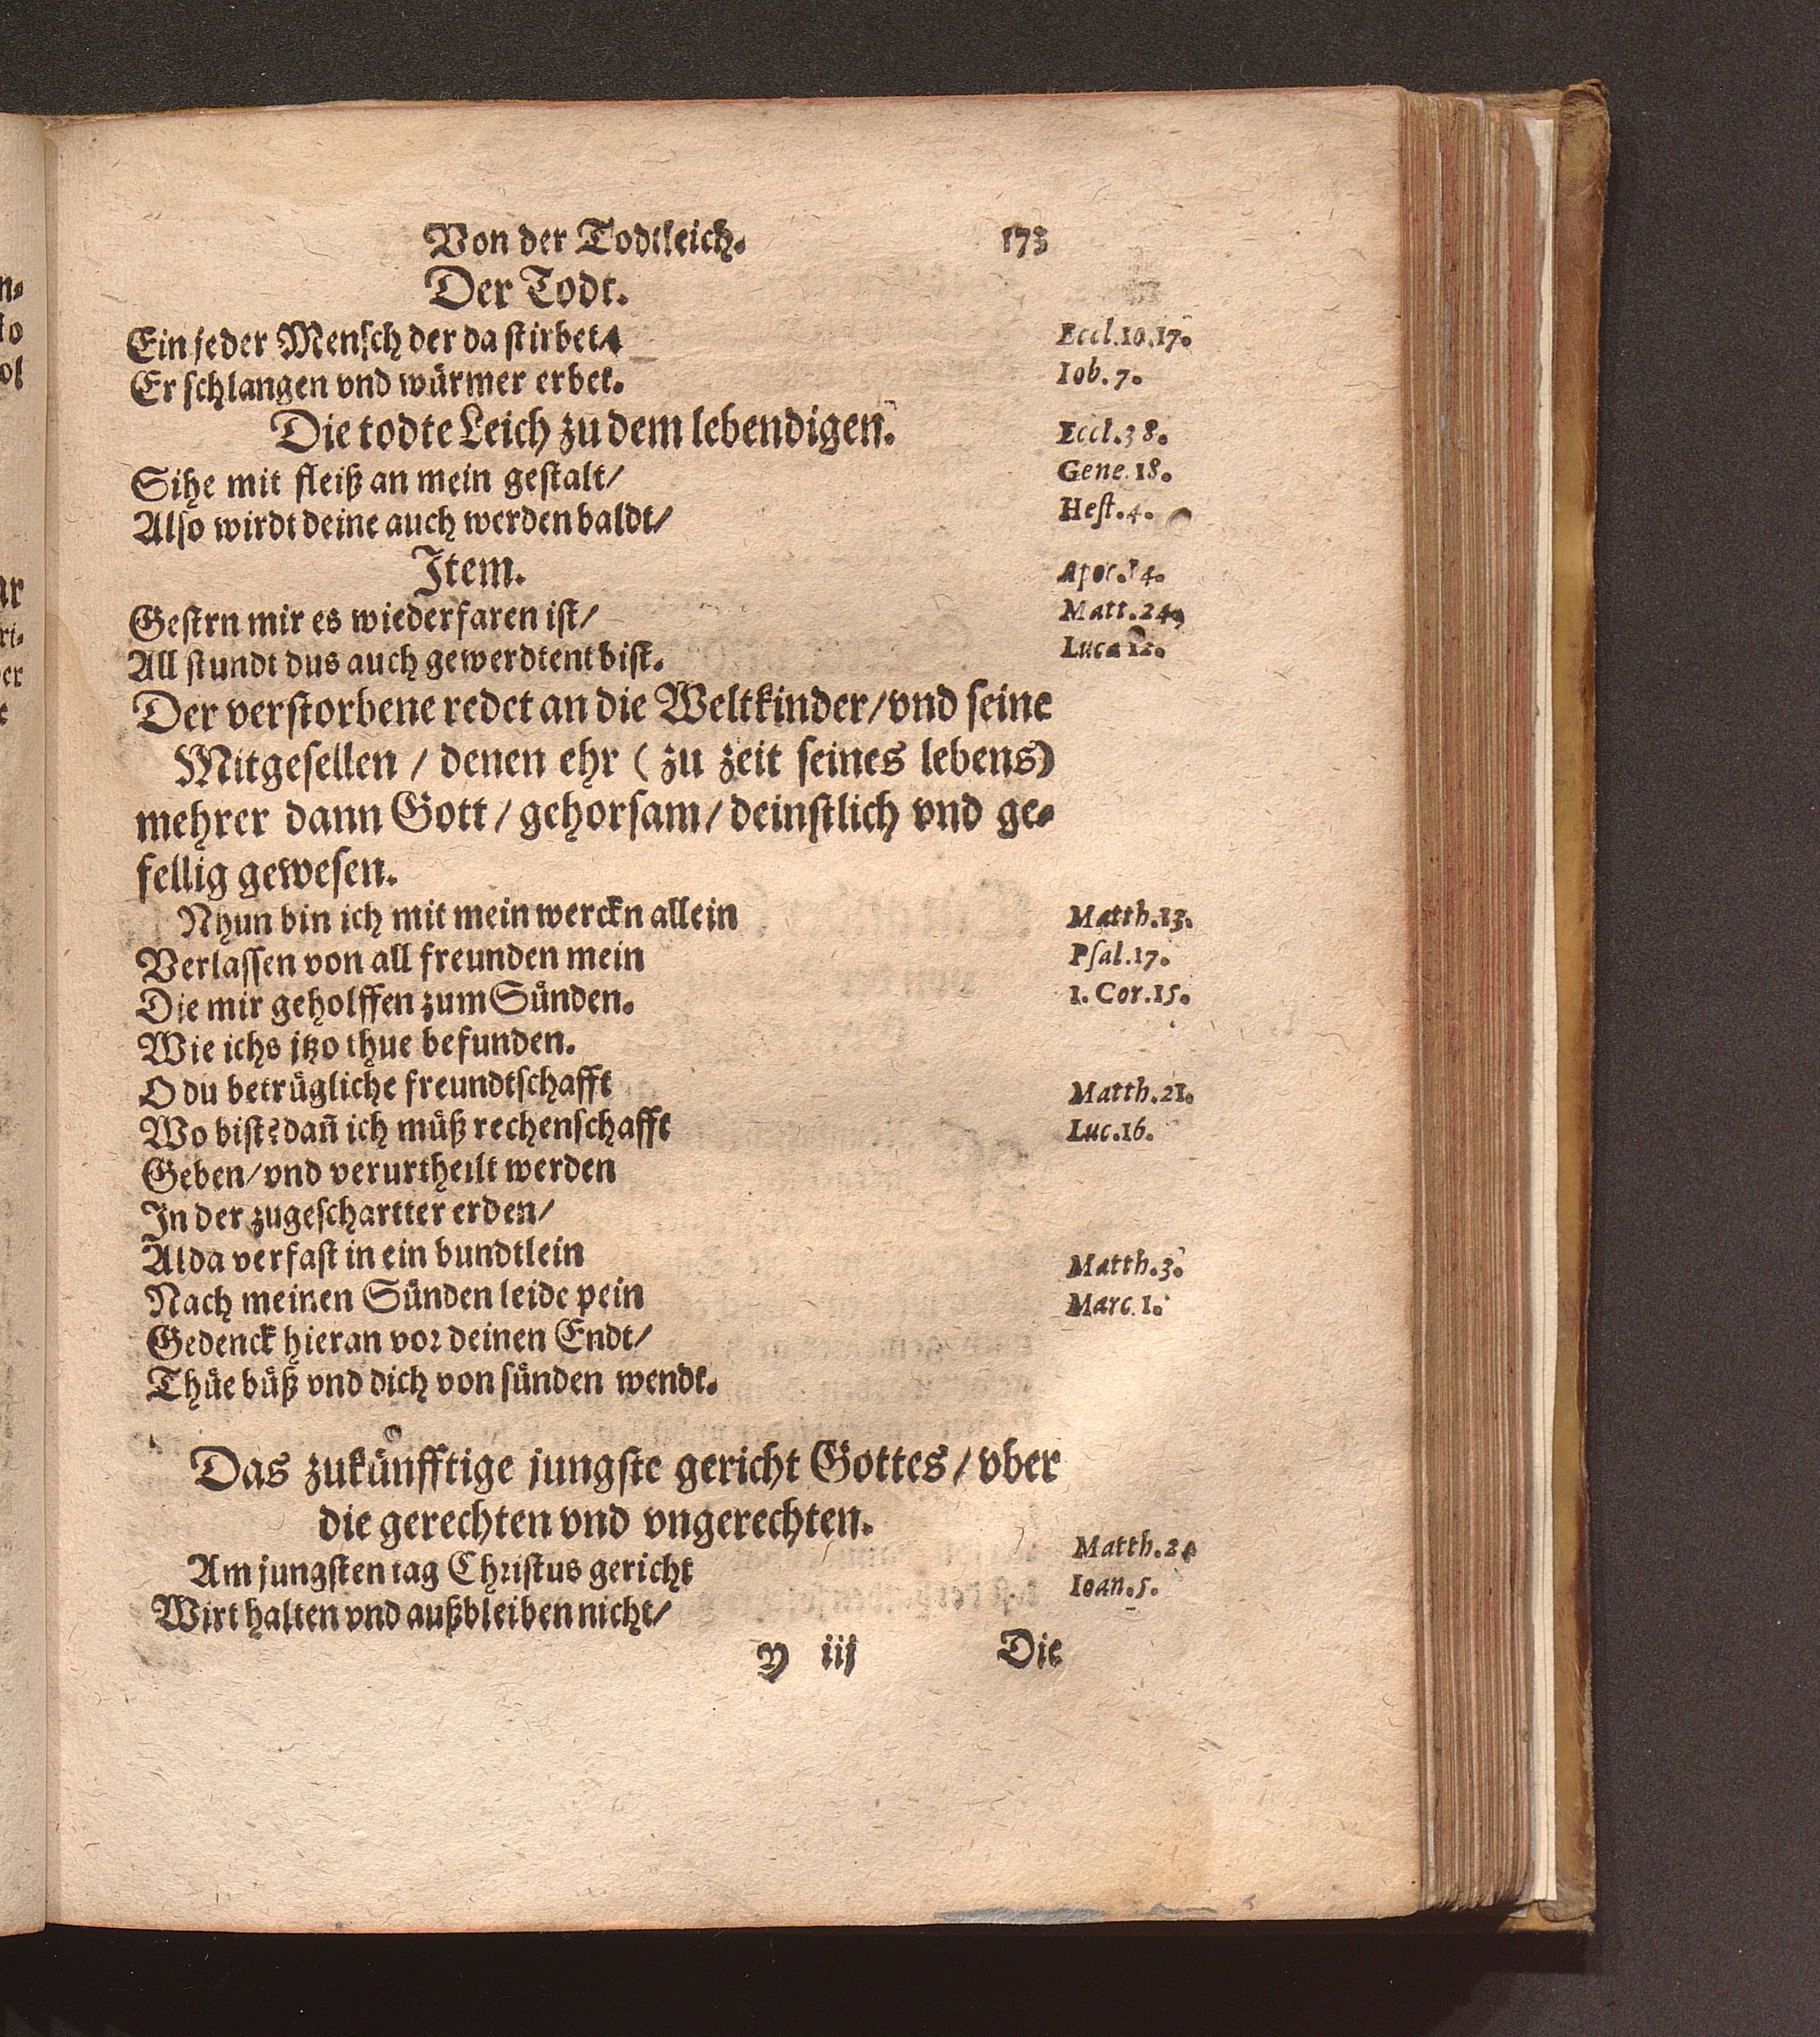 Von der Todtleich. 173
Der Todt.
Ein jeder Mensch der da stirbet/ Eccl.10.17.
Er schlangen vnd würmer erbet. Iob.7.
Die todte Leich zu dem lebendigen. Eccl.38.
Sihe mit fleiß an mein gestalt/ Gene.18.
Also wirdt deine auch werden baldt/ Hest.4.
Item. Apoc.14.
Gestrn mir es wiederfaren ist/ Matt.24.
All stundt dus auch gewerdtent bist. Luca 12.
Der verstorbene redet an die Weltkinder/ vnd seine
Mitgesellen / denen ehr ( zu zeit seines lebens)
mehrer dann Gott / gehorsam / deinstlich vnd ge-
fellig gewesen.
Nhun bin ich mit mein werckn allein Matth.13.
Verlassen von all freunden mein Psal.17.
Die mir geholffen zum Sünden. 1. Cor.15.
Wie ichs jtzo thue befunden.
O du betrügliche freundtschafft Matth.21.
Wo bist? dañ ich můß rechenschafft Luc.16.
Geben/ vnd verurtheilt werden
In der zugeschartter erden/
Alda verfast in ein bundtlein Matth.3.
Nach meinen Sünden leide pein Marc.1.
Gedenck hieran vor deinen Endt/
Thůe bůß vnd dich von sünden wendt.
Das zukünfftige jungste gericht Gottes / vber
die gerechten vnd vngerechten.
Am jungsten tag Christus gericht Matth.
Wirt halten vnd außbleiben nicht/ Ioan.5.
y iij Die